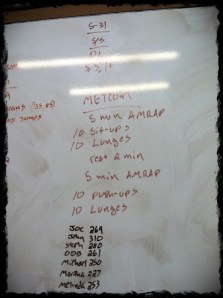 5-31
METCON
5 min AMRAP
10 Sit-ups
10 Lunges
rest 2 min
5 min AMRAP
10 push-ups
10 Lunges
JOE 269
John 310
280
ODB 261
Michael 250
227
253
James